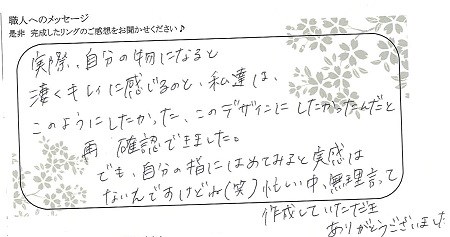 職人へのメッセージ
是非 完成したリングのご感想をお聞かせください♪
実際、自分の物になると
凄くキレイに感じるのと、私達は、
このようにしたかった、このデザインにしたかったんだと
再確認できました。
でも、自分の指にはめてみると実感は
ないんですけどね(笑)忙しい中、無理言って
作成していただき
ありがとうございました